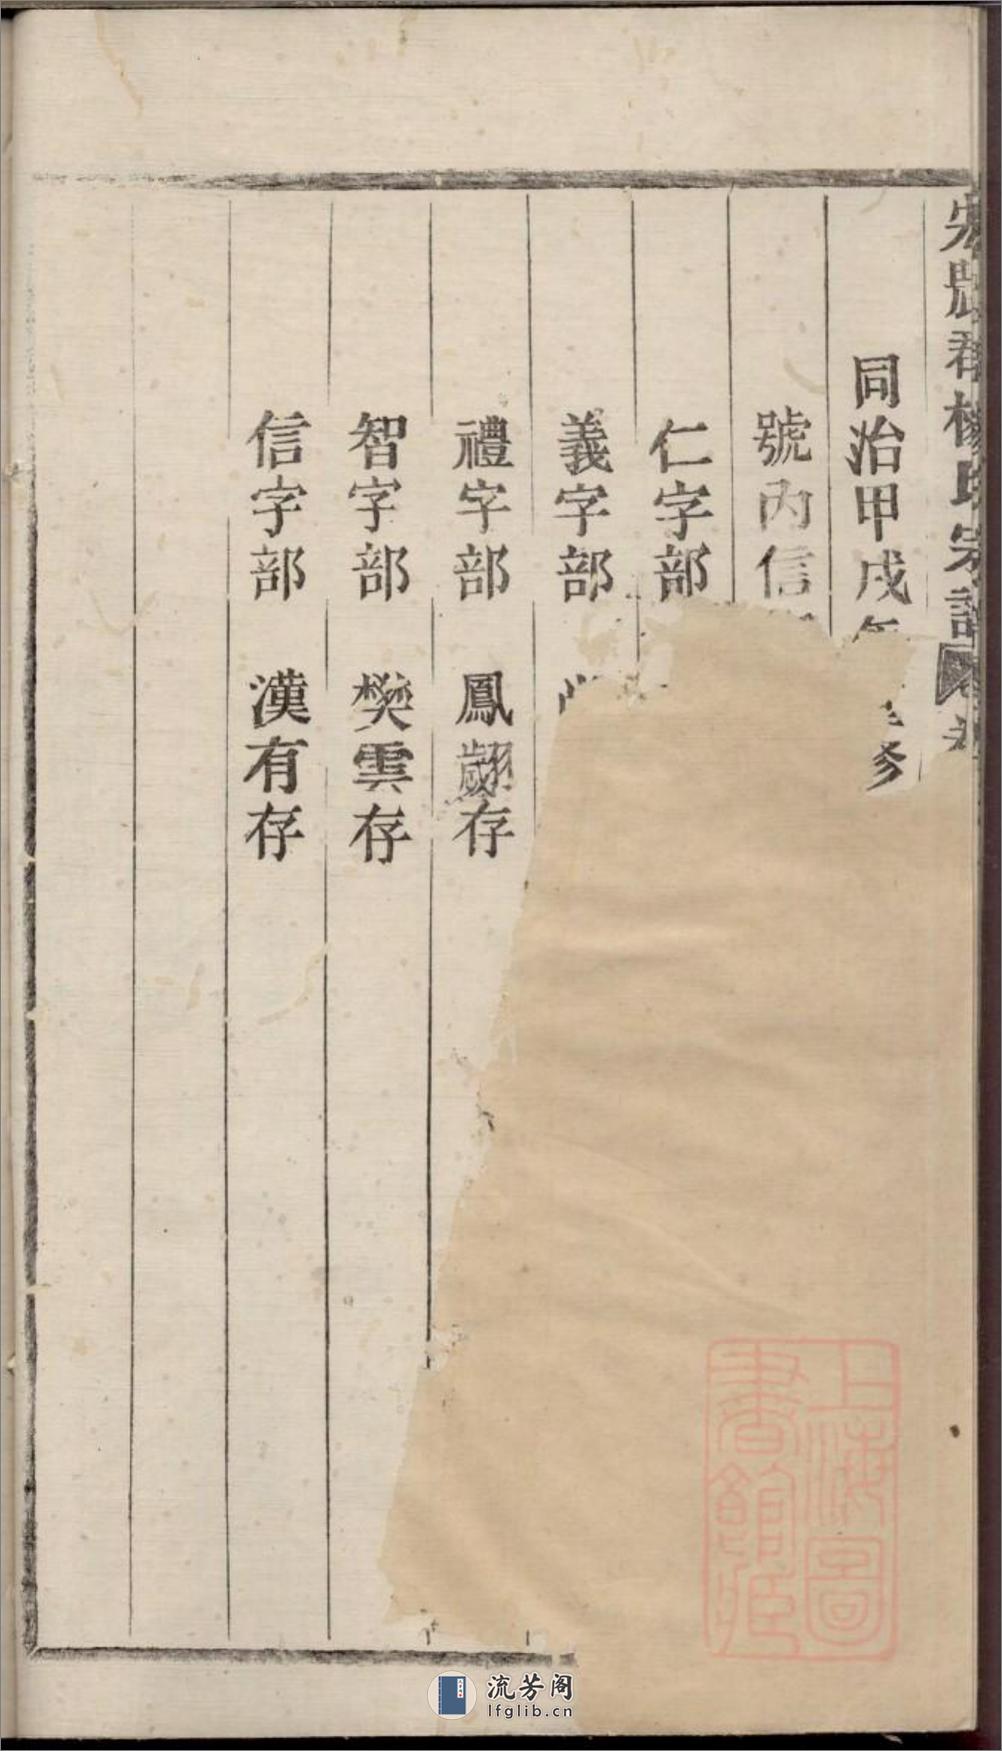 楊氏宗譜
同治甲戌年 修
號內信
仁字部
義字部
禮字部 鳳翽存
智字部 樊雲存
信字部 漢有存
上海圖書館藏
流芳阁
lfglib.cn